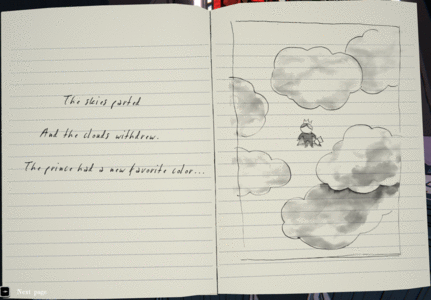 The skies parted
And the clouds withdrew.
The prince had a new favorite color...
Next page